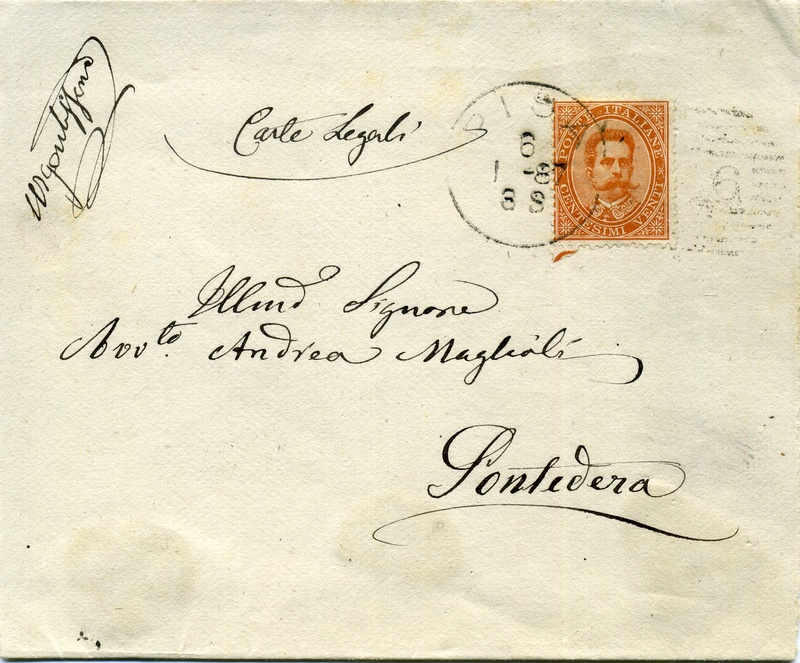 Urgentissima
Carte Legali
PISA
6
1-87
8 S
POSTE ITALIANE
CENTESIMI VENTI
Illmo Signore
Avvto. Andrea Maglioli
Pontedera